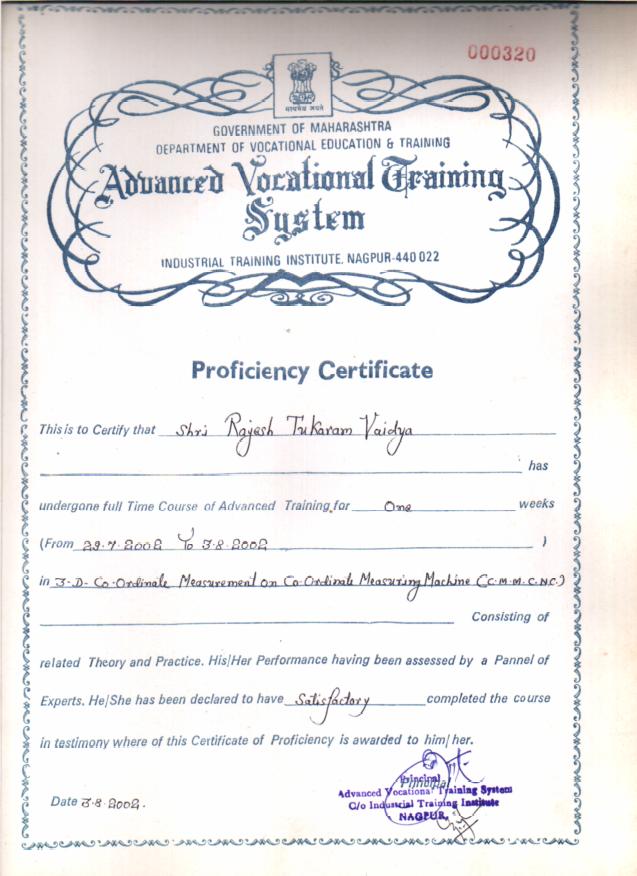 000320
सत्यमेव जयते
GOVERNMENT OF MAHARASHTRA
DEPARTMENT OF VOCATIONAL EDUCATION & TRAINING
Advanced Vocational Training
System
INDUSTRIAL TRAINING INSTITUTE, NAGPUR-440 022
Proficiency Certificate
This is to Certify that Shri Rajesh Tukaram Vaidya
has
undergone full Time Course of Advanced Training for One weeks
(From 29.7.2002 To 3.8.2002 )
in 3-D- Co-Ordinate Measurement on Co-Ordinate Measuring Machine (C.M.M.C.NC.)
Consisting of
related Theory and Practice. His/Her Performance having been assessed by a Pannel of
Experts. He/She has been declared to have Satisfactory completed the course
in testimony where of this Certificate of Proficiency is awarded to him/her.
Principal
Principal
Advanced Vocational Training System
C/o Industrial Training Institute
NAGPUR.
Date 3.8.2002.